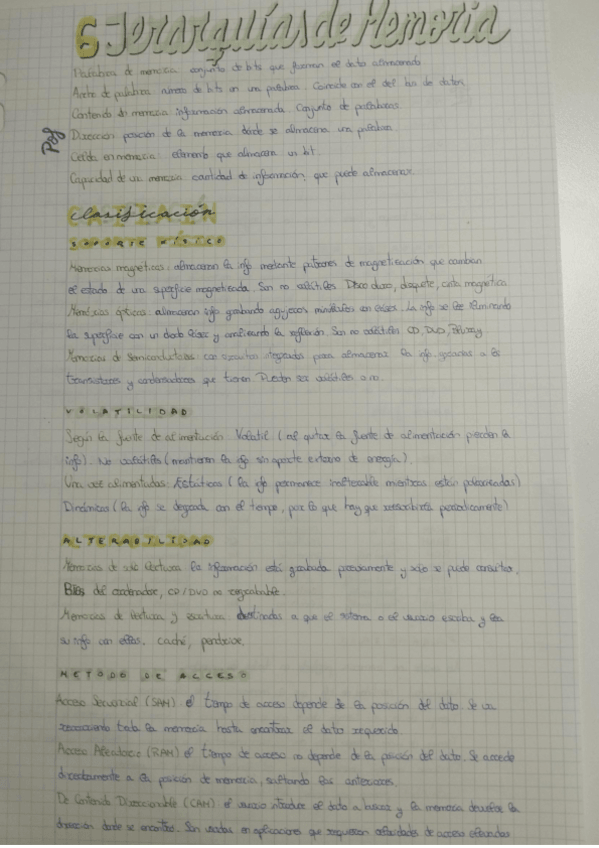 6 Jerarquías de Memoria
Palabra de memoria conjunto de bits que forman el dato almacenado
Ancho de palabra número de bits en una palabra. Coincide con el del bus de datos.
Contenido de memoria información almacenada. Conjunto de palabras.
Dirección posición de la memoria donde se almacena una palabra
Celda en memoria: elemento que almacena un bit.
Capacidad de una memoria cantidad de información que puede almacenar.
clasificación
SOPORTE FÍSICO
Memorias magnéticas: almacenan la info mediante patrones de magnetización que cambian
el estado de una superficie magnetizada. Son no volátiles Disco duro, disquete, cinta magnética
Memorias ópticas: almacenan info grabando agujeros minúsculos con láser. La info se lee iluminando
la superficie con un diodo láser y analizando la reflexión. Son no volátiles CD, DVD, Bluray
Memorias de Semiconductores: con circuitos integrados para almacenar la info, gracias a los
transistores y condensadores que tienen. Pueden ser volátiles o no.
VOLATILIDAD
Según la fuente de alimentación: Volátil (al quitar la fuente de alimentación pierden la
info). No volátiles (mantienen la info sin aporte externo de energía).
Una vez alimentadas: Estáticas (la info permanece inalterable mientras están polarizadas)
Dinámicas (la info se degrada con el tiempo, por lo que hay que reescribirla periódicamente)
ALTERABILIDAD
Memorias de solo lectura la información está grabada previamente y solo se puede consultar.
BIOS del ordenador, CD/DVD no regrabable.
Memorias de lectura y escritura destinadas a que el sistema o el usuario escriba y lea
su info con ellas. caché, pendrive.
METODO DE ACCESO
Acceso Secuencial (SAM) el tiempo de acceso depende de la posición del dato. Se va
recorriendo toda la memoria hasta encontrar el dato requerido.
Acceso Aleatorio (RAM) el tiempo de acceso no depende de la posición del dato. Se accede
directamente a la posición de memoria, saltando las anteriores.
De Contenido Direccionable (CAM) el usuario introduce el dato a buscar y la memoria devuelve la
dirección donde se encontró. Son usadas en aplicaciones que requieren velocidades de acceso elevadas